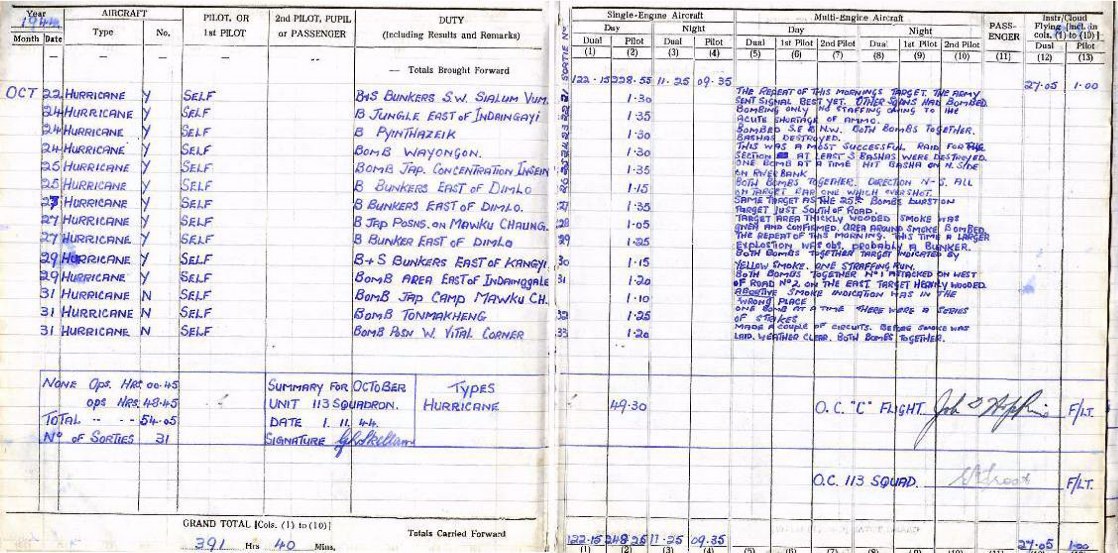 Year AIRCRAFT PILOT, OR 2ND PILOT, PUPIL DUTY
1944 1ST PILOT OR PASSENGER (Including Results and Remarks)
Month Date Type No.
— — — — — — Totals Brought Forward
OCT 22 HURRICANE Y SELF B+S BUNKERS S.W. SIALUM VUM.
24 HURRICANE Y SELF B JUNGLE EAST OF INDAINGAYI
24 HURRICANE Y SELF B PYINTHAZEIK
24 HURRICANE Y SELF BOMB WAYONGON.
25 HURRICANE Y SELF BOMB JAP. CONCENTRATION INSEIN
25 HURRICANE Y SELF B BUNKERS EAST OF DIMLO
27 HURRICANE Y SELF B BUNKERS EAST OF DIMLO.
27 HURRICANE Y SELF B JAP POSNS. ON MAWKU CHAUNG.
27 HURRICANE Y SELF B BUNKER EAST OF DIMLO
29 HURRICANE Y SELF B+S BUNKERS EAST OF KANGYI
29 HURRICANE Y SELF BOMB AREA EAST OF INDAINGGALE
31 HURRICANE N SELF BOMB JAP CAMP MAWKU CH.
31 HURRICANE N SELF BOMB TONMAKHENG
31 HURRICANE N SELF BOMB POSN W. VITAL CORNER
NONE OPS. HRS 00.45 SUMMARY FOR OCTOBER TYPES
OPS HRS. 48.45 UNIT 113 SQUADRON. HURRICANE
TOTAL - - - 54.05 DATE 1. 11. 44.
Nº OF SORTIES 31 SIGNATURE
GRAND TOTAL [Cols. (1) to (10)] Totals Carried Forward
391 Hrs 40 Mins.
Single-Engine Aircraft Multi-Engine Aircraft PASS-ENGER Instr/Cloud Flying [Incl. in cols. (1) to (10)]
Day Night Day Night
SORTIE Nº Dual Pilot Dual Pilot Dual 1st Pilot 2nd Pilot Dual 1st Pilot 2nd Pilot Dual Pilot
(1) (2) (3) (4) (5) (6) (7) (8) (9) (10) (11) (12) (13)
122.15 228.55 11.25 09.35 27.05 1.00
21 1.30 THE REPEAT OF THIS MORNINGS TARGET. THE ARMY
SENT SIGNAL BEST YET. OTHER SQDNS HAD BOMBED.
22 1.35 BOMBING ONLY NO STAFFING OWING TO THE
ACUTE SHORTAGE OF AMMO.
23 1.30 BOMBED S.E. & N.W. BOTH BOMBS TOGETHER.
BASHAS DESTROYED.
24 1.30 THIS WAS A MOST SUCCESSFUL RAID FOR THE
SECTION AT LEAST 3 BASHAS WERE DESTROYED.
25 1.35 ONE BOMB AT A TIME HIT BASHA ON N. SIDE
ON RIVER BANK
26 1.15 BOTH BOMBS TOGETHER. DIRECTION N-S. ALL
ON TARGET BAR ONE WHICH OVERSHOT.
27 1.35 SAME TARGET AS THE 25TH BOMBS BURST ON
TARGET JUST SOUTH OF ROAD.
28 1.05 TARGET AREA THICKLY WOODED SMOKE WAS
GIVEN AND CONFIRMED. AREA AROUND SMOKE BOMBED.
29 1.25 THE REPEAT OF THIS MORNING. THIS TIME A LARGER
EXPLOSION WAS OBS. PROBABLY A BUNKER.
30 1.15 BOTH BOMBS TOGETHER TARGET INDICATED BY
YELLOW SMOKE. ONE STRAFFING RUN.
31 1.20 BOTH BOMBS TOGETHER Nº1 ATTACKED ON WEST
OF ROAD Nº2. ON THE EAST TARGET HEAVILY WOODED.
1.10 ABORTIVE SMOKE INDICATION WAS IN THE
WRONG PLACE
32 1.25 ONE BOMB AT A TIME THERE WERE A SERIES
OF STRIKES
33 1.20 MADE A COUPLE OF CIRCUITS. BEFORE SMOKE WAS
LAID. WEATHER CLEAR. BOTH BOMBS TOGETHER.
49.30 O.C. "C" FLIGHT F/LT.
O.C. 113 SQUAD. F/LT.
122.15 248.25 11.25 09.35 27.05 1.00
(1) (2) (3) (4) (5) (6) (7) (8) (9) (10) (11) (12) (13)